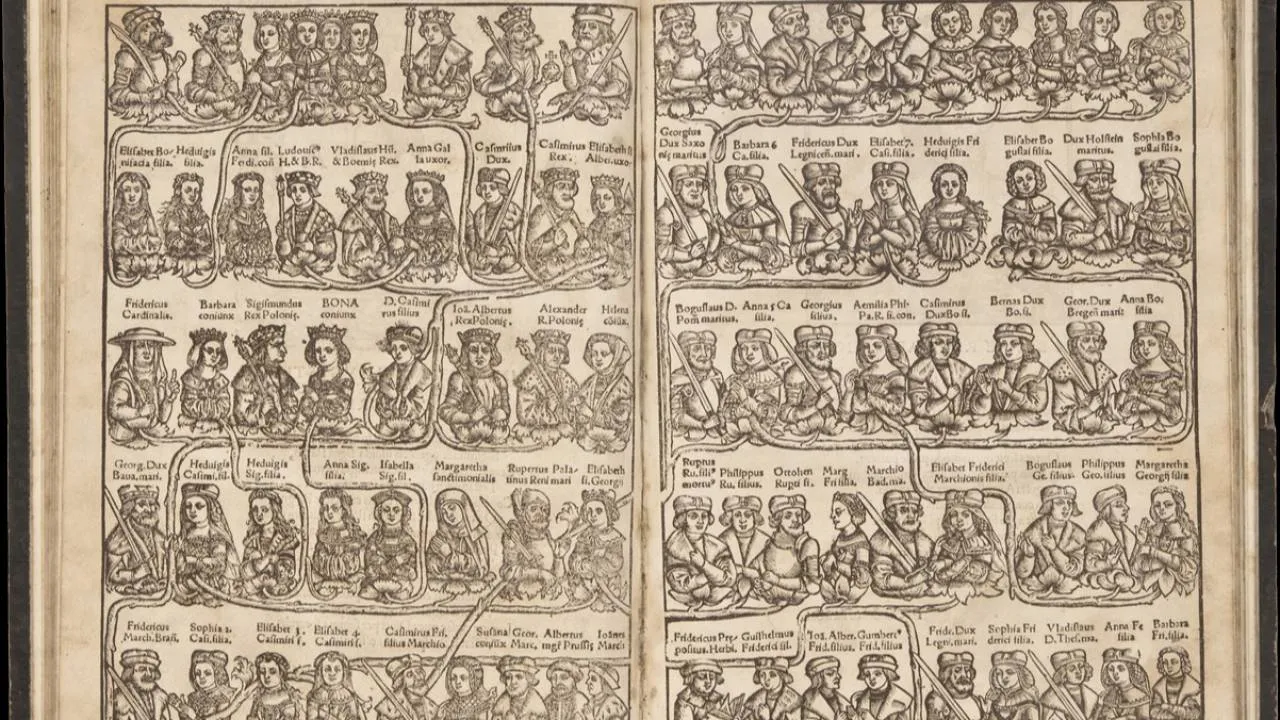 Elisabet Bo- Heduigis Anna fil. Ludouic⁹ Vladislaus Hũ. Anna Gal Casmirius Casimirus Elisabeth
nifacia filia. filia. Fedi.coñ H. & B.R. & Boemię Rex. la uxor. Dux. Rex. Alber.uxo-
Fridericus Barbara Sigismundus BONA D. Casimi Ioã. Albertus Alexander Helena
Cardinalis. coniunx Rex Polonię. coniunx rus filius RexPolonię. R.Polonię
Georg. Dux Heduigis Heduigis Anna Sig. Isabella Margaretha Rupertus Pala- Elisabeth
Baua.mari. Casimi.fil. Sig.filia. filia. Sig.fil. sanctimonialis tinus Reni mari fi.Georgii
Fridericus Sophia 2. Elisabet 3. Elisabet 4. Casimirus Fri. Susana Geor. Albertus Ioãnes
March. Brañ. Casi.filia. Casimiri f. Casimiri f. filius Marchio coniũx Marc. mgr Prussię March
Georgius
Dux Saxo Barbara 6 Fridericus Dux Elisabet 7. Heduigis Fri Elisabet Bo Dux Holstein Sophia Bo
nię maritus Ca.filia. Legniceñ.mari. Casi.filia. derici filia. guslai filia. maritus. guslai filia.
Boguslaus D. Anna 5 Ca Georgius Aemilia Phi- Casimirus Bernas Dux Geor. Dux Anna Bo.
Pom̃ maritus. filia. filius. Pa.R. fi.con. DuxBo fi. Bo.fi. Bregeñ marit filia
Ruptus Philippus Ottohen Marg Marchio Elisabet Friderici Boguslaus Philippus Margaretha
Ru.fili⁹ Ru. filius. Rugti fi. Fri filia. Bad.ma. Marchionis filia. Ge. filius. Geo.filius Georgii filia
mortu⁹
Fridericus Pre- Guilhelmus Ioã. Alber. Gumbert⁹ Fride. Dux Sophia Fri Vladislaus Anna Fe Barbara
positus.Herbi. Friderici fil. Frid.filius. Frid.filius Legni.mari. derici filia. D.Thes.ma. filia Fri.filia.